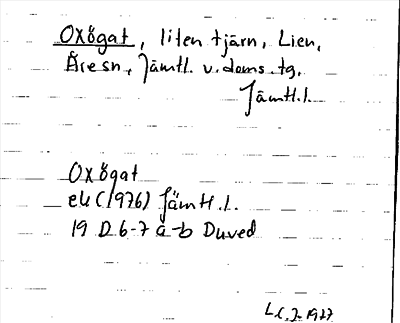 Oxögat, liten tjärn, Lien,
Åre sn, Jämtl. v. doms. tg,
Jämtl.l.
Oxögat
ek (1976) Jämtl.l.
19 D 6-7 a-b Duved